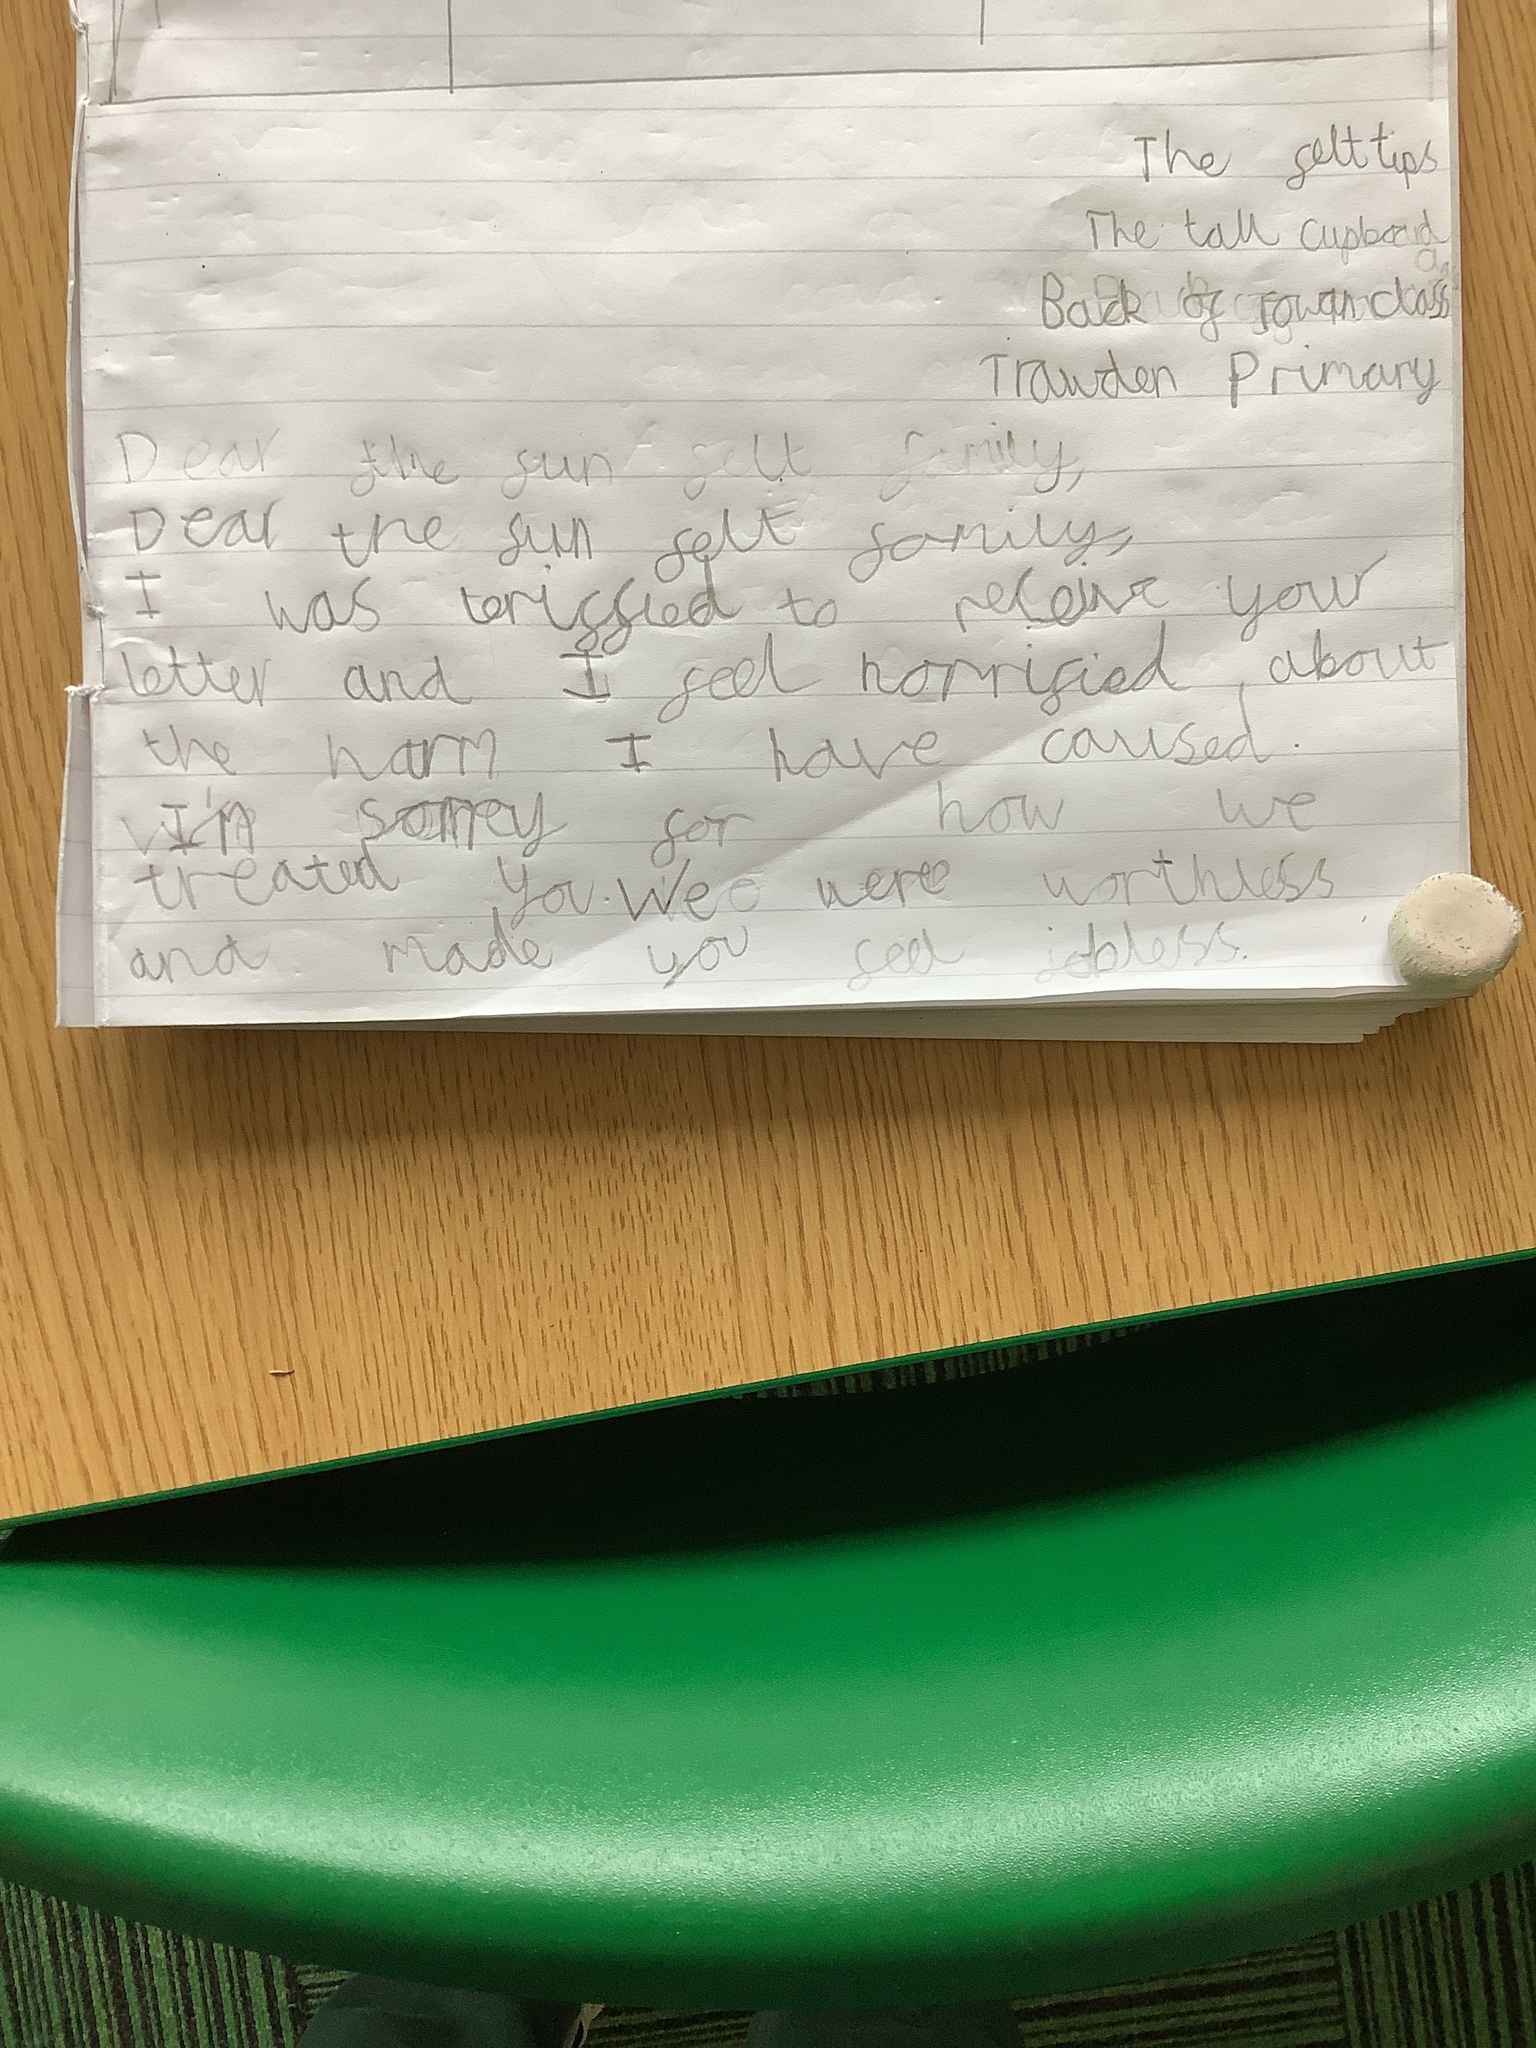 The felt tips
The tall cupboard
Back of rowan class
Trawden Primary
Dear the fun felt family,
Dear the fun felt family,
I was teriffied to receive your
letter and I feel horrified about
the harm I have caused.
I'm sorrey for how we
treated you. We were worthless
and made you feel jobless.